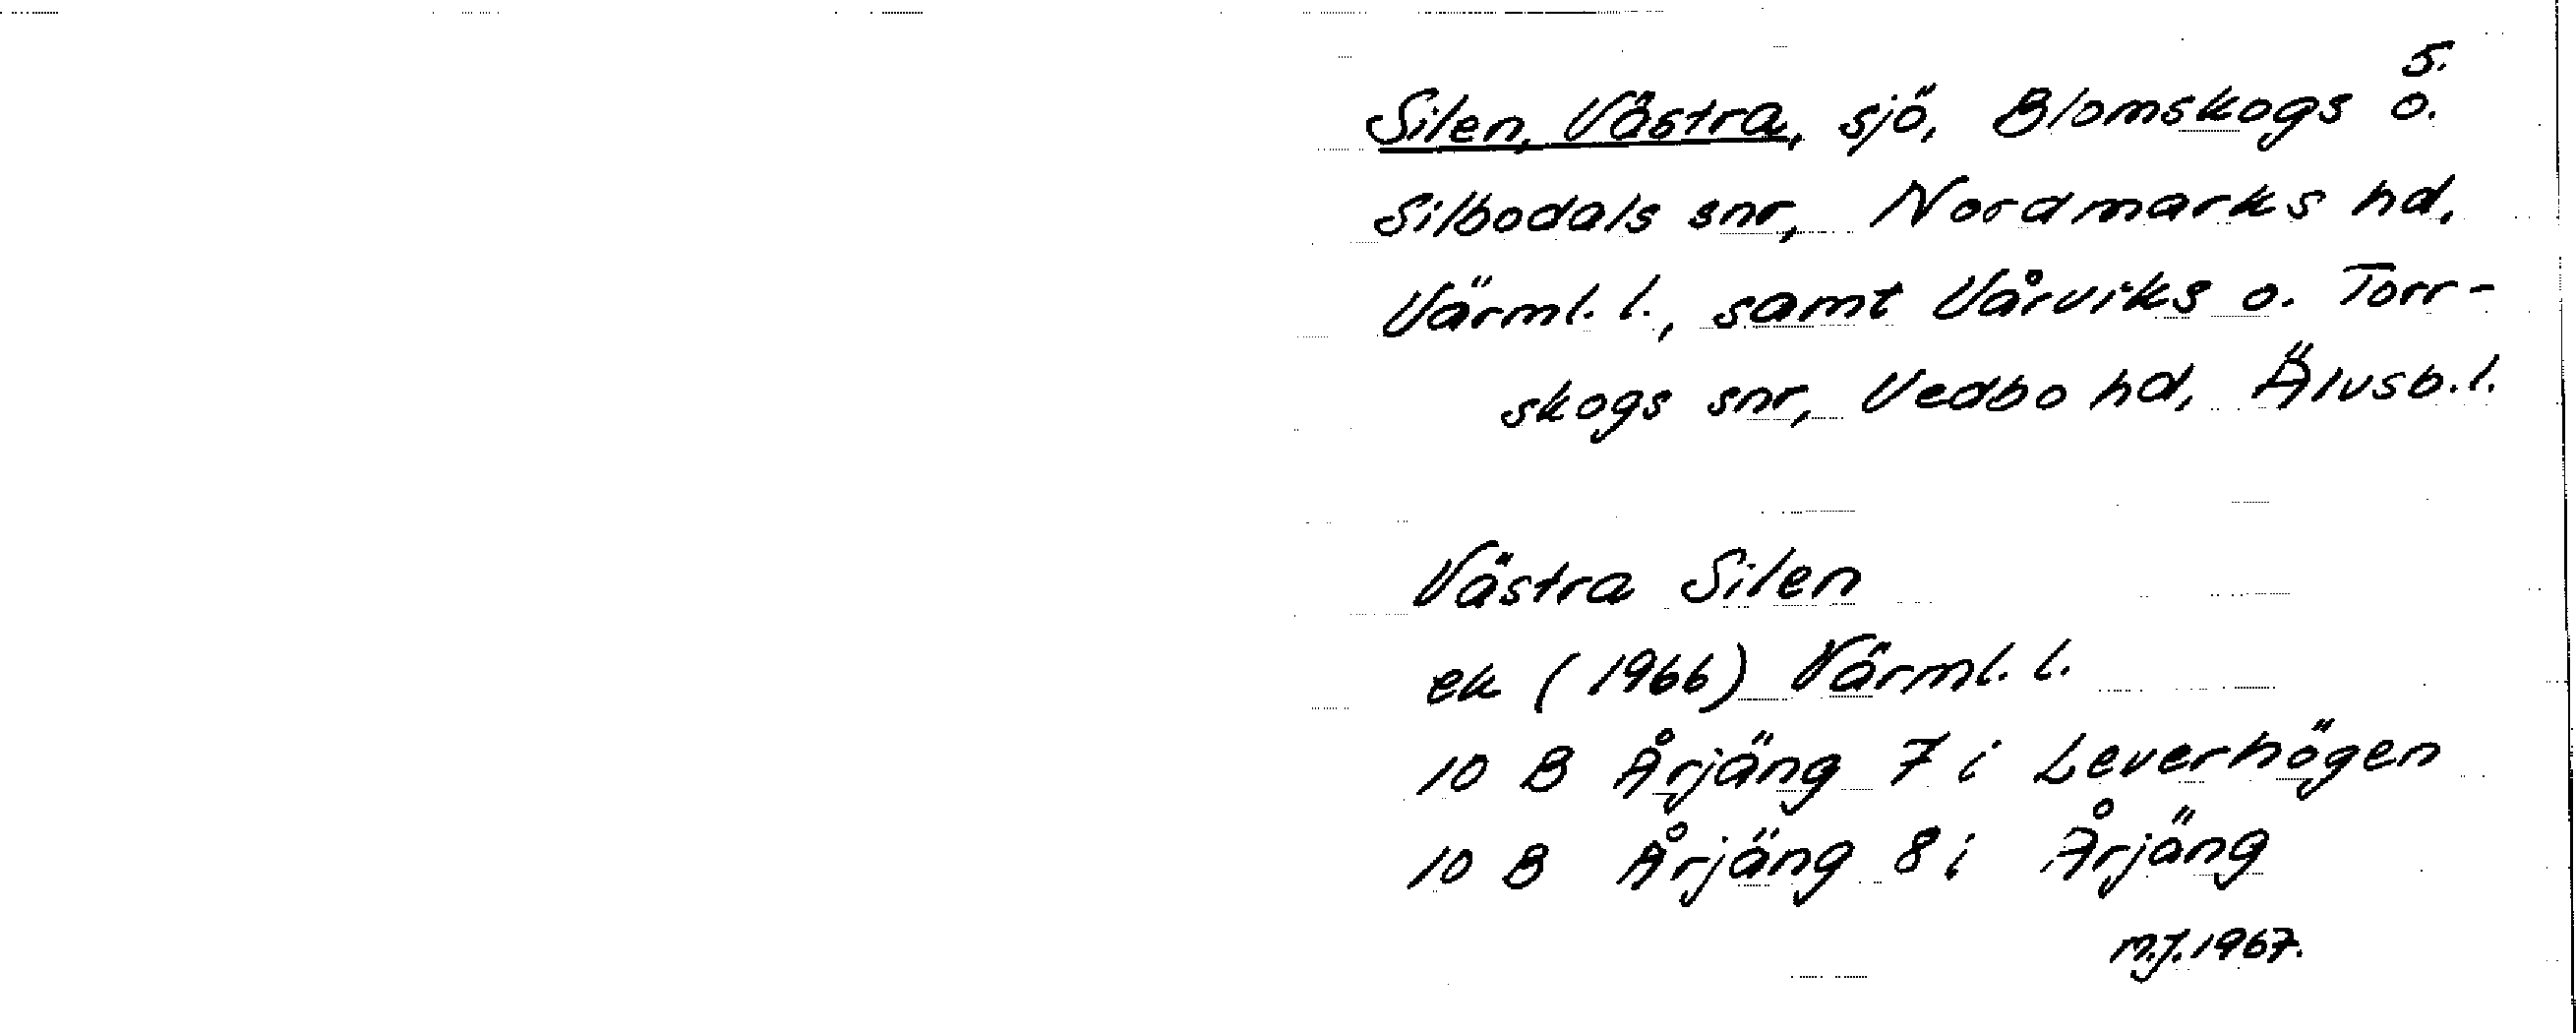 5.
Silen, Västra, sjö, Blomskogs o.
Silbodals snr, Nordmarks hd,
Värml. l., samt Vårviks o. Torr-
skogs snr, Vedbo hd, Älvsb. l.
Västra Silen
ek (1966) Värml. l.
10 B Årjäng 7 i Leverhögen
10 B Årjäng 8 i Årjäng
M.J. 1967.